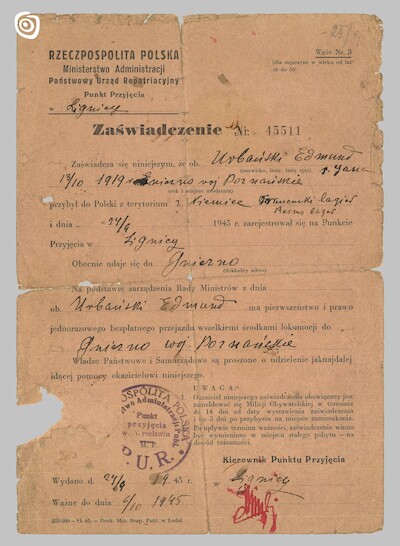 25/9
RZECZPOSPOLITA POLSKA
Ministerstwo Administracji
Państwowy Urząd Repatriacyjny
Punkt Przyjęcia
w Lignicy
Wzór Nr. 3
(dla repatrian. w wieku od lat
16 do 50)
Zaświadczenie Nr. 45511
Zaświadcza się niniejszym, że ob. Urbański Edmund
(nazwisko, imię, imię ojca) s. Jana
13/10 1919 Gniezno woj Poznańskie
(rok i miejsce urodzenia)
przybył do Polski z terytorium Niemiec
i dnia 24/9 1945 r. zarejestrował się na Punkcie
Przyjęcia w Lignicy
Obecnie udaje się do Gniezno
(dokładny adres)
Na podstawie zarządzenia Rady Ministrów z dnia
ob. Urbański Edmund ma pierwszeństwo i prawo
jednorazowego bezpłatnego przejazdu wszelkiemi środkami lokomocji do
Gniezno woj. Poznańskie
Władze Państwowe i Samorządowe są proszone o udzielenie jaknajdalej
idącej pomocy okazicielowi niniejszego.
UWAGA:
1. Okaziciel niniejszego zaświadczenia obowiązany jest
zameldować się Milicji Obywatelskiej w terminie
do 14 dni od daty wystawienia zaświadczenia
i do 3 dni po przybyciu na miejsce zamieszkania.
Po upływie terminu ważności, zaświadczenie winno
być wymienione w miejscu stałego pobytu na
dowód tożsamości.
RZECZPOSPOLITA POLSKA
Punkt
przyjęcia
P.U.R.
Kierownik Punktu Przyjęcia
Wydano d. 24/9 1945 r.
w Lignicy
Ważne do dnia 6/10 1945
250.000 – VI. 45. – Druk. Min. Skup. Publ. w Łodzi